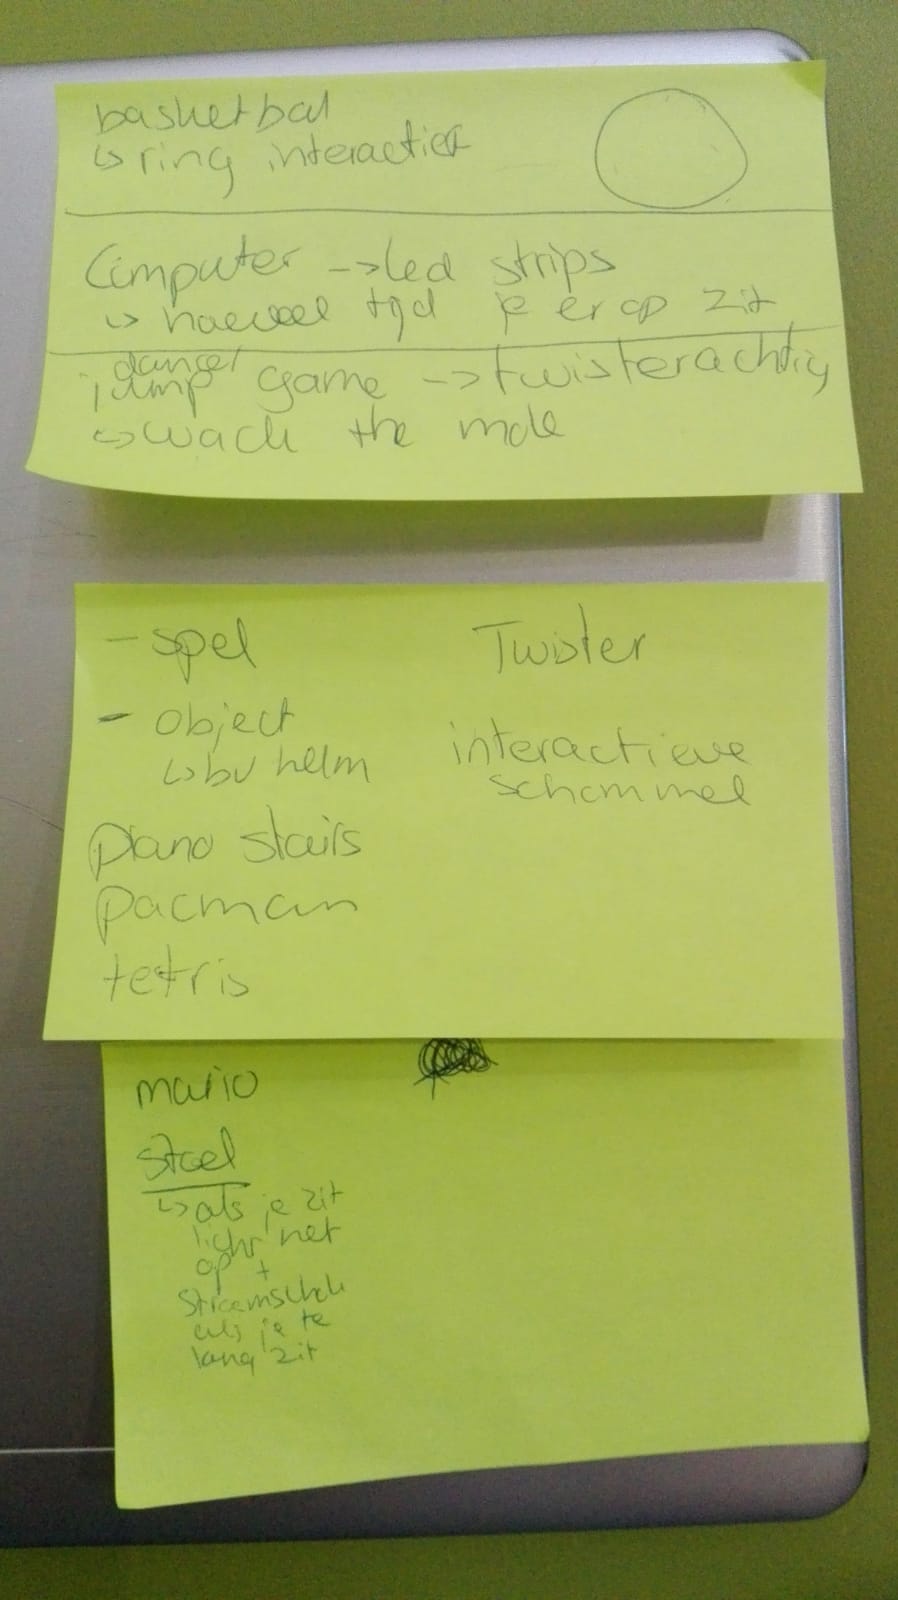 basketbal
↳ ring interactief
Computer -> Led strips
↳ hoeveel tijd je erop zit
danse/
jump game -> twisterachtig
↳ wack the mole
- spel
- object
↳ bv helm
piano stairs
pacman
tetris
Twister
interactieve
schommel
mario
stoel
↳ als je zit
licht het
op +
stroomschok
als je te
lang zit